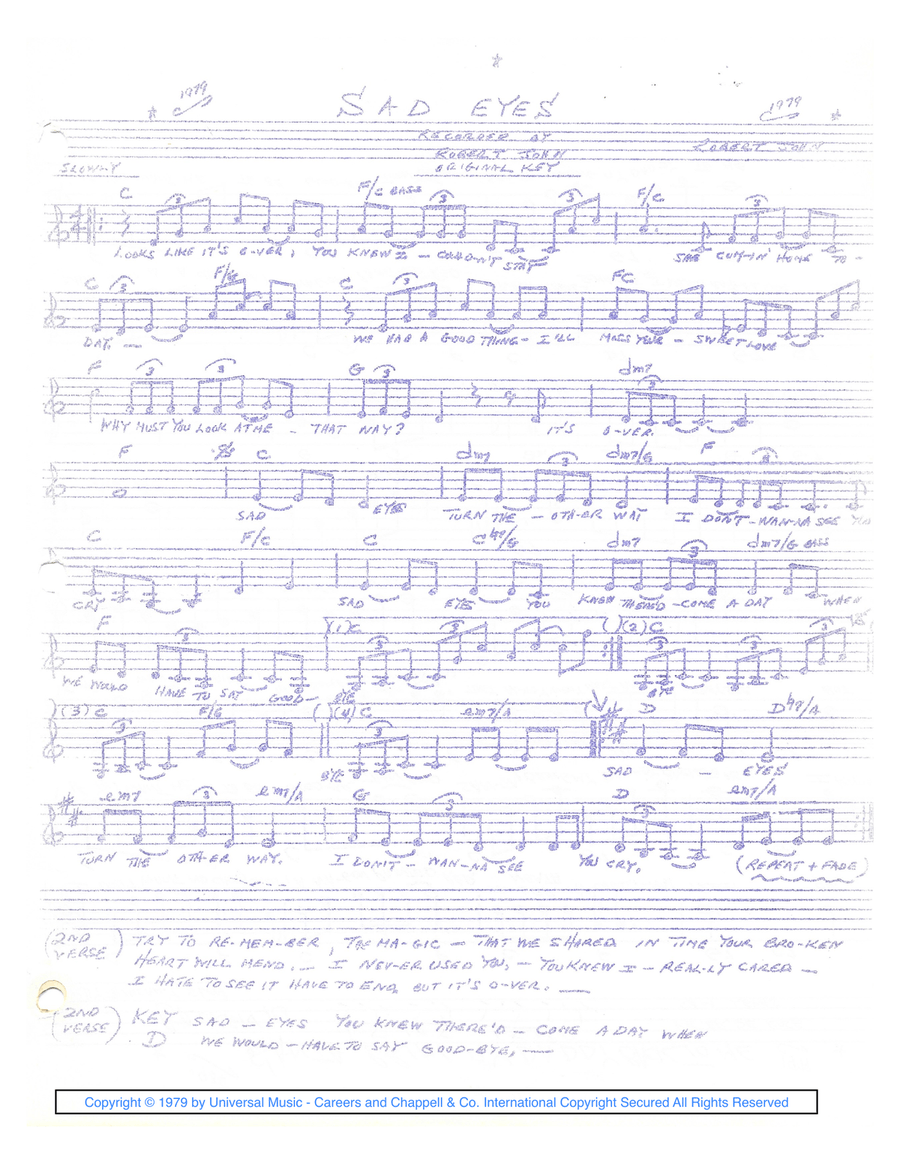 1979 SAD EYES 1979
RECORDED BY
ROBERT JOHN ROBERT JOHN
SLOWLY ORIGINAL KEY
C 3 F/C BASS 3 3 F/C 3
LOOKS LIKE IT'S O-VER, YOU KNEW I - COULDN'T STAY SHE COM-IN' HOME TO -
C 3 F/G C 3 FC
DAY. — WE HAD A GOOD THING - I'LL MISS YOUR - SWEET LOVE
F 3 3 G 3 dm7 3
WHY MUST YOU LOOK AT ME - THAT WAY? IT'S O-VER.
F C dm7 3 dm7/G F 3
SAD EYES TURN THE - OTH-ER WAY I DON'T - WAN-NA SEE YOU
C F/C C dm7 3 dm7/G BASS
CRY SAD EYES YOU KNEW THERE'D - COME A DAY WHEN
F 3 (1) C 3 3 (2) C 3 3 3
WE WOULD HAVE TO SAY GOOD - BYE BYE
(3) C 3 F/G (4) C 3 em7/A D
BYE SAD - EYES
em7 3 em7/A G 3 D 3 em7/A
TURN THE OTH-ER WAY. I DON'T - WAN-NA SEE YOU CRY. (REPEAT + FADE)
(2ND VERSE) TRY TO RE-MEM-BER, THE MA-GIC - THAT WE SHARED IN TIME YOUR BRO-KEN
HEART WILL MEND. - I NEV-ER USED YOU, - YOU KNEW I - REAL-LY CARED -
I HATE TO SEE IT HAVE TO END, BUT IT'S O-VER. —
(2ND VERSE) KEY SAD - EYES YOU KNEW THERE'D - COME A DAY WHEN
D WE WOULD - HAVE TO SAY GOOD-BYE, —
Copyright © 1979 by Universal Music - Careers and Chappell & Co. International Copyright Secured All Rights Reserved